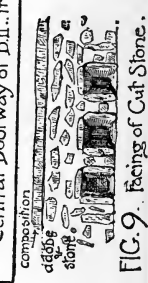 Central Doorway of
composition
adobe
&
stone.
FIG. 9. Facing of Cut Stone.